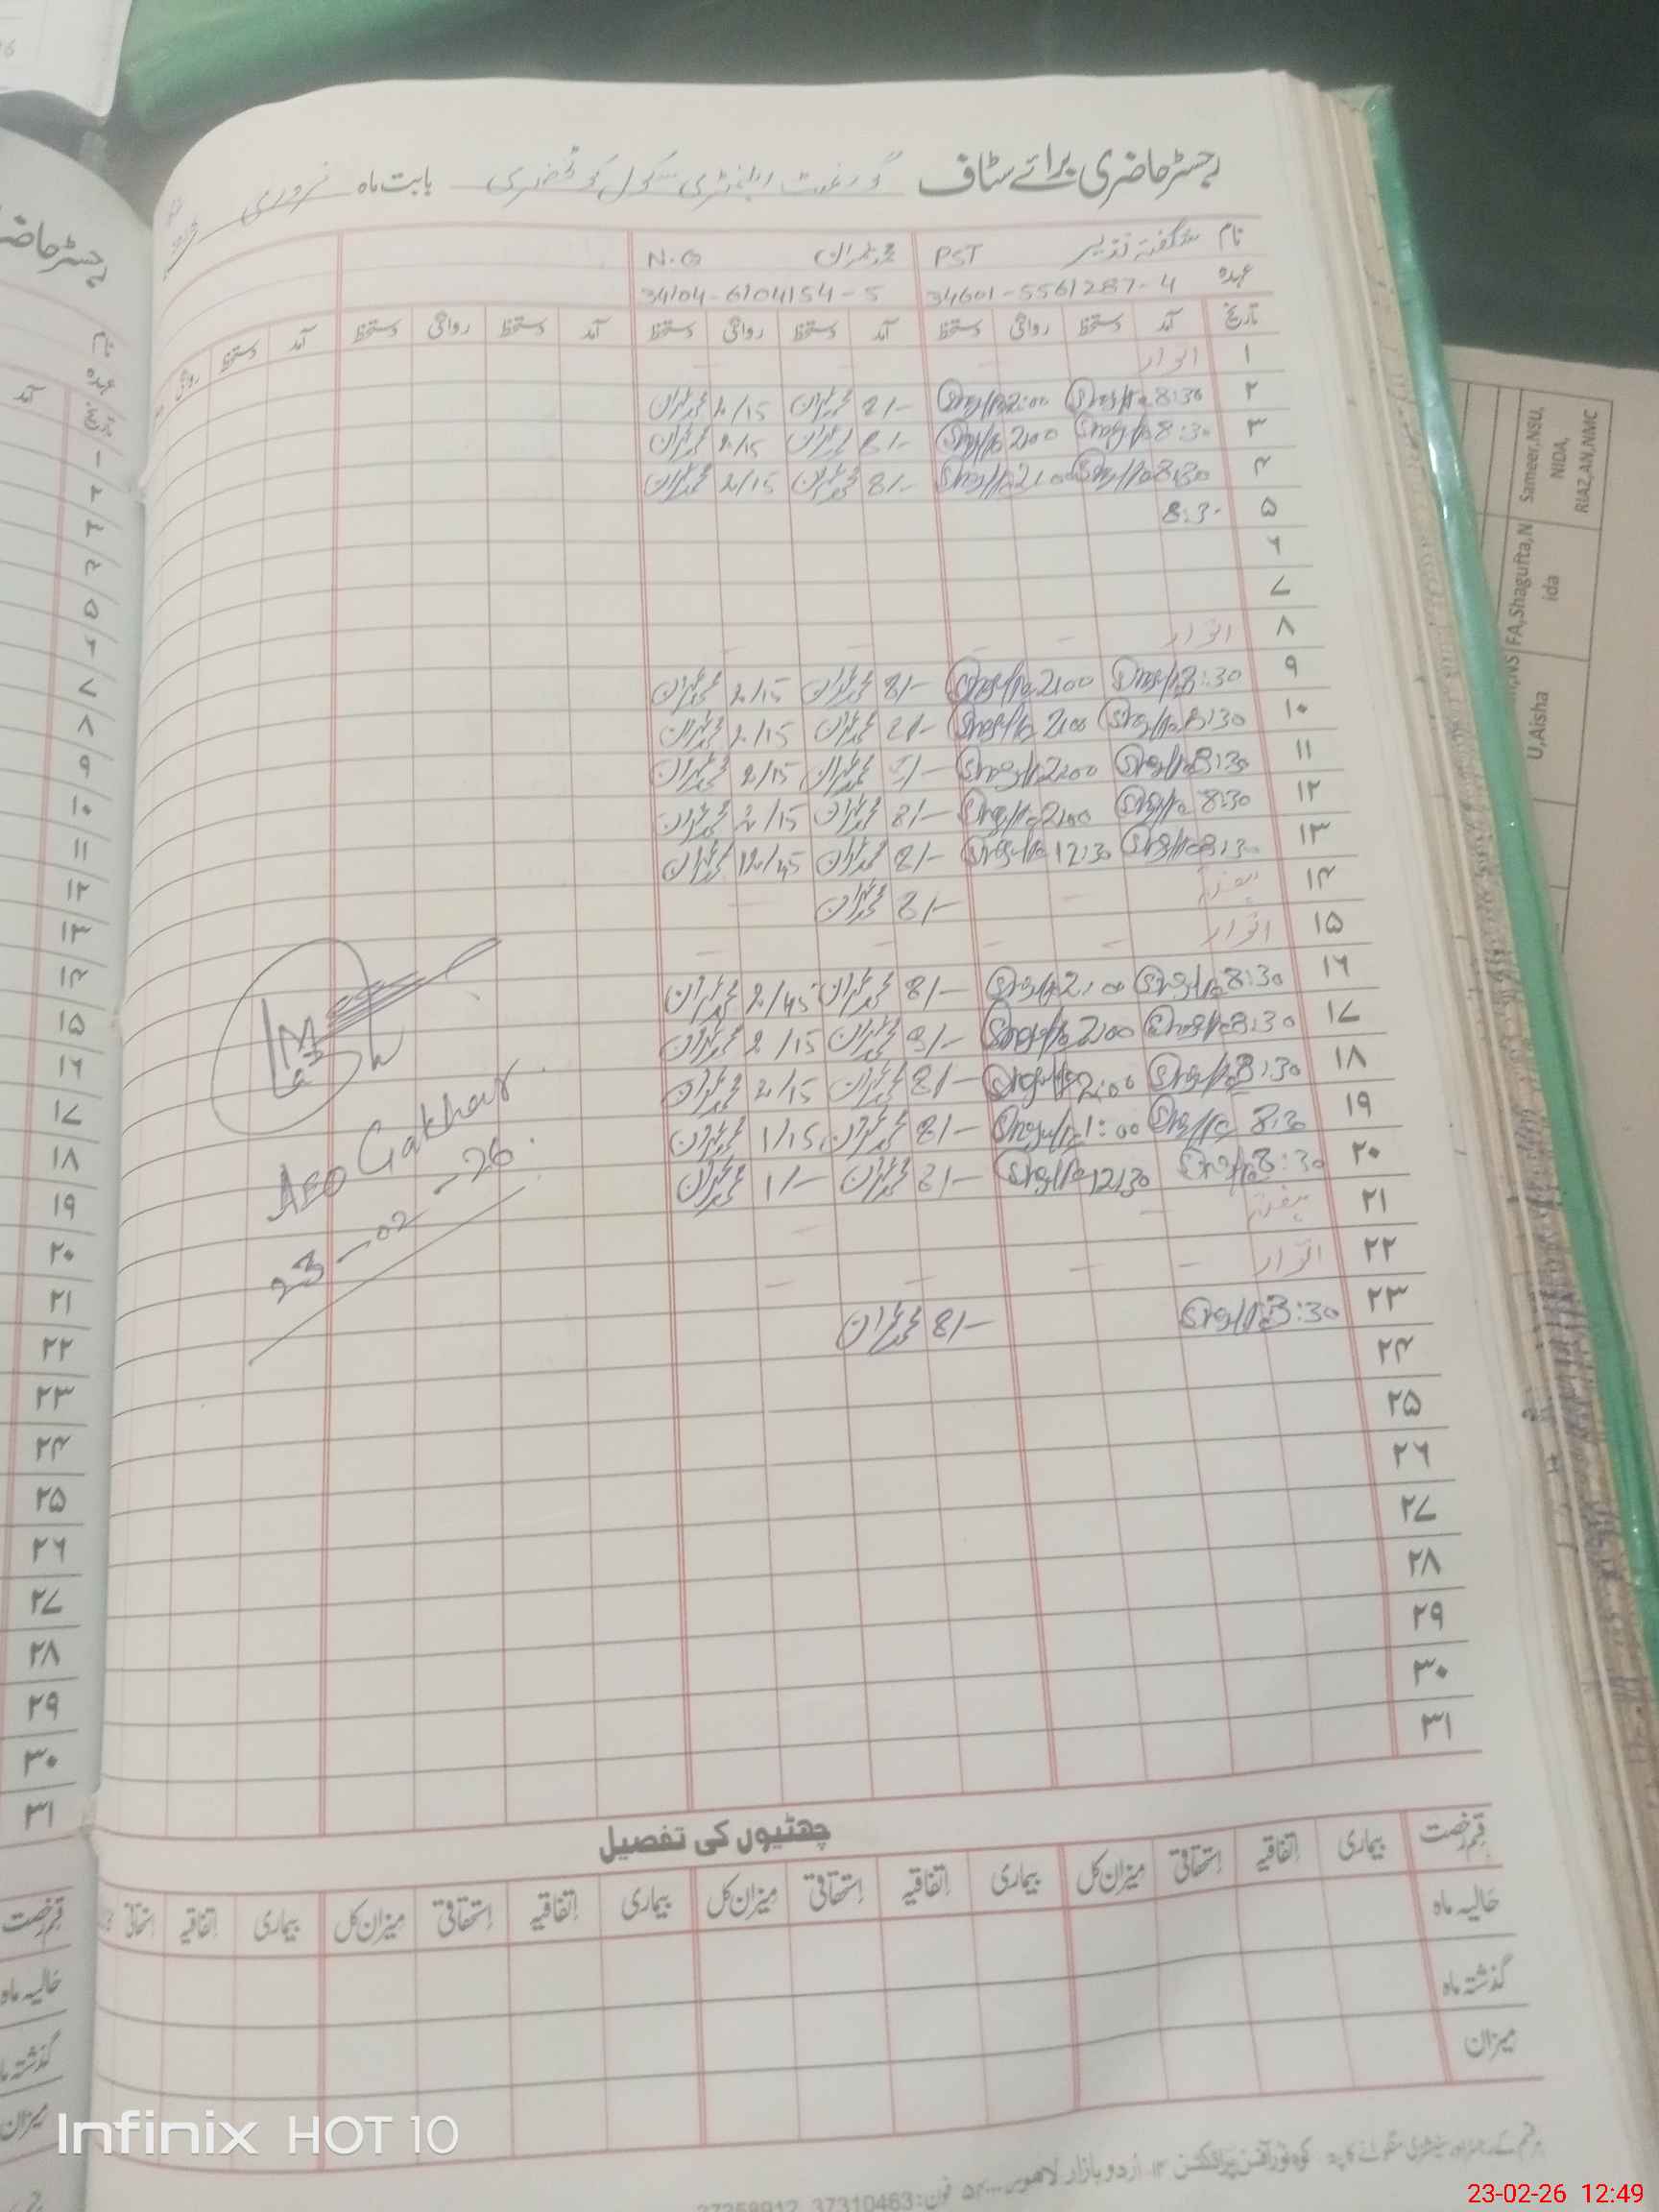 رجسٹر حاضری برائے سٹاف گورنمنٹ ایلیمنٹری سکول بابت ماہ فروری
نام شگفتہ نذیر PST محمد عمران N.Q
عہدہ 34601-5561287-4 34104-6104154-5
تاریخ آمد دستخط روانگی دستخط آمد دستخط روانگی دستخط آمد دستخط روانگی دستخط آمد دستخط روانگی
۱ اتوار
۲ 8:30 Shagufta 2:00 Shagufta 8/- محمد عمران 2/15 محمد عمران
۳ 8:30 Shagufta 2:00 Shagufta 8/- محمد عمران 2/15 محمد عمران
۴ 8:30 Shagufta 2:00 Shagufta 8/- محمد عمران 2/15 محمد عمران
۵ 8:3-
۶
۷
۸ اتوار
۹ 8:30 Shagufta 2:00 Shagufta 8/- محمد عمران 2/15 محمد عمران
۱۰ 8:30 Shagufta 2:00 Shagufta 8/- محمد عمران 2/15 محمد عمران
۱۱ 8:30 Shagufta 2:00 Shagufta محمد عمران 2/15 محمد عمران
۱۲ 8:30 Shagufta 2:00 Shagufta 8/- محمد عمران 2/15 محمد عمران
۱۳ 8:30 Shagufta 12:30 Shagufta 8/- محمد عمران 12/45 محمد عمران
۱۴ ہفتہ 8/- محمد عمران
۱۵ اتوار
۱۶ 8:30 Shagufta 2:00 Shagufta 8/- محمد عمران 2/45 محمد عمران
۱۷ 8:30 Shagufta 2:00 Shagufta 8/- محمد عمران 2/15 محمد عمران
۱۸ 8:30 Shagufta 2:00 Shagufta 8/- محمد عمران 2/15 محمد عمران
۱۹ 8:30 Shagufta 1:00 Shagufta 8/- محمد عمران 1/15 محمد عمران
۲۰ 8:30 Shagufta 12:30 Shagufta 8/- محمد عمران 1/- محمد عمران
۲۱ ہفتہ
۲۲ اتوار
۲۳ 8:30 Shagufta 8/- محمد عمران
۲۴
۲۵
۲۶
۲۷
۲۸
۲۹
۳۰
۳۱
AEO Gakhar
23-02-26
چھٹیوں کی تفصیل
قسم رخصت بیماری اتفاقیہ استحقاقی میزان کل بیماری اتفاقیہ استحقاقی میزان کل بیماری اتفاقیہ استحقاقی میزان کل بیماری اتفاقیہ
حالیہ ماہ
گذشتہ ماہ
میزان
اردو بازار لاہور فون: 37310463
رجسٹر حاضری
نام
عہدہ
تاریخ آمد
۱
۲
۳
۴
۵
۶
۷
۸
۹
۱۰
۱۱
۱۲
۱۳
۱۴
۱۵
۱۶
۱۷
۱۸
۱۹
۲۰
۲۱
۲۲
۲۳
۲۴
۲۵
۲۶
۲۷
۲۸
۲۹
۳۰
۳۱
قسم رخصت
حالیہ ماہ
گذشتہ ماہ
میزان
Sameer,NSU,
NIDA,
RIAZ,AN,NMC
FA,Shagufta,N
ida
U,Aisha
Infinix HOT 10
23-02-26 12:49